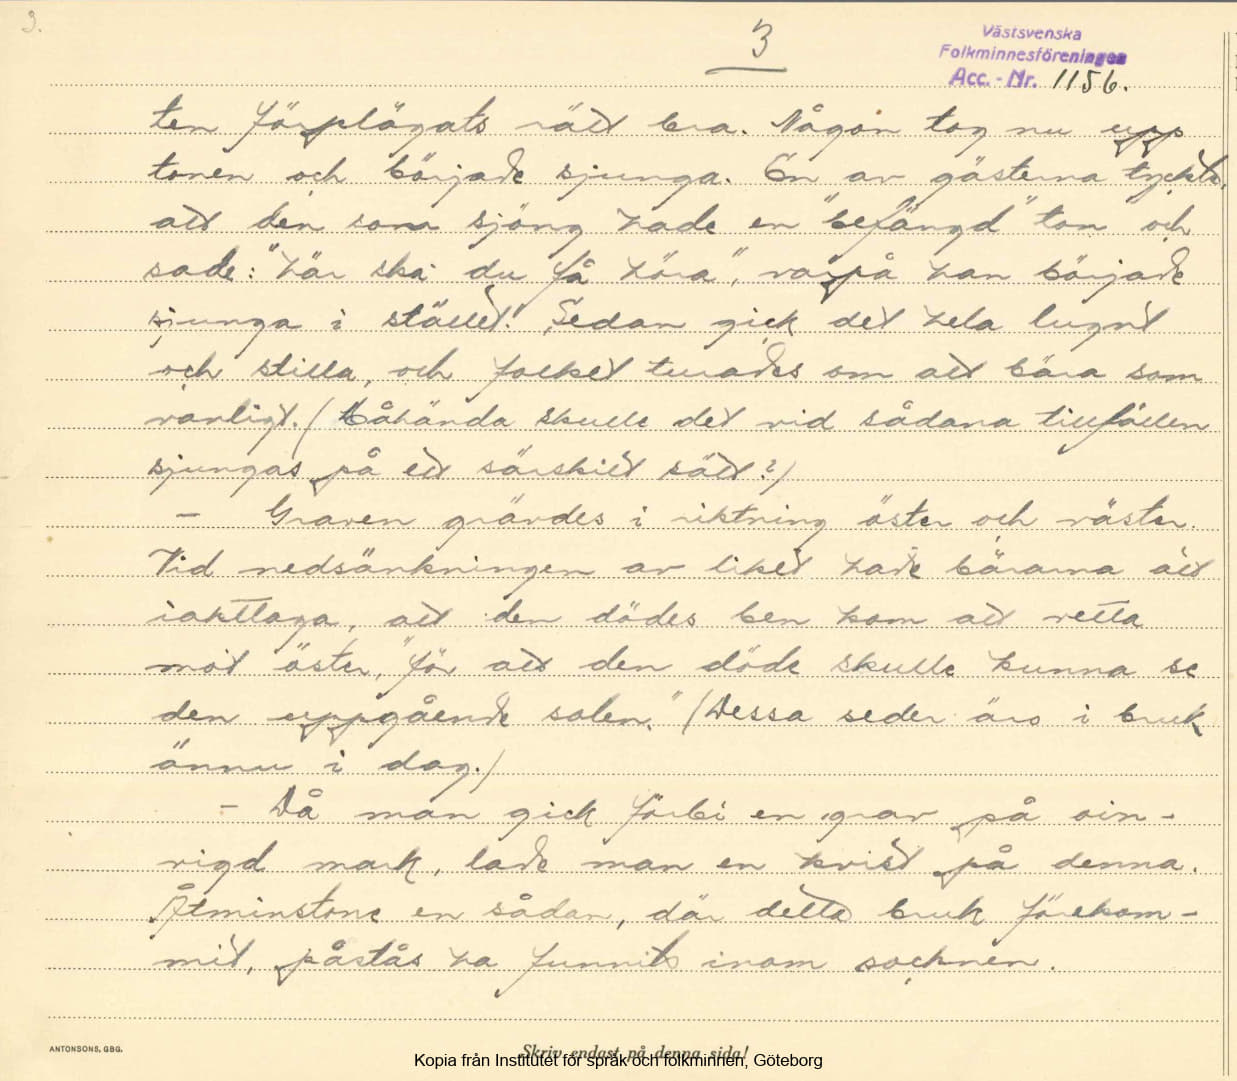 3.
3
Västsvenska
Folkminnesföreningen
Acc. - Nr. 1156.
ten förplägats rätt bra. Någon tog nu upp
tonen och började sjunga. En av gästerna tyckte,
att den som sjöng hade en "befängd" ton och
sade: "här ska du få höra", varpå han började
sjunga i stället. "Sedan gick det hela lugnt
och stilla, och folket turades om att bära som
vanligt. (Kåhända skulle det vid sådana tillfällen
sjungas på ett särskilt sätt?)
- Graven grävdes i riktning öster och väster.
Vid nedsänkningen av liket hade bärarna att
iakttaga, att den dödes ben kom att vetta
mot öster, "för att den döde skulle kunna se
den uppgående solen." (Dessa seder äro i bruk
ännu i dag.)
- Då man gick förbi en grav på oin-
vigd mark, lade man en kvist på denna.
Åtminstone en sådan, där detta bruk förekom-
mit, påstås ha funnits inom socknen.
ANTONSONS, GBG.
Skriv endast på denna sida!
Kopia från Institutet för språk och folkminnen, Göteborg